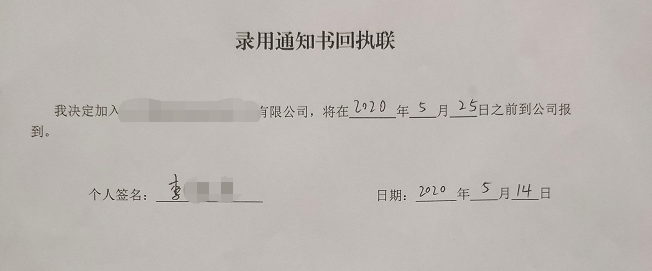 录用通知书回执联
我决定加入有限公司，将在2020年5月25日之前到公司报
到。
个人签名：李 日期：2020年5月14日